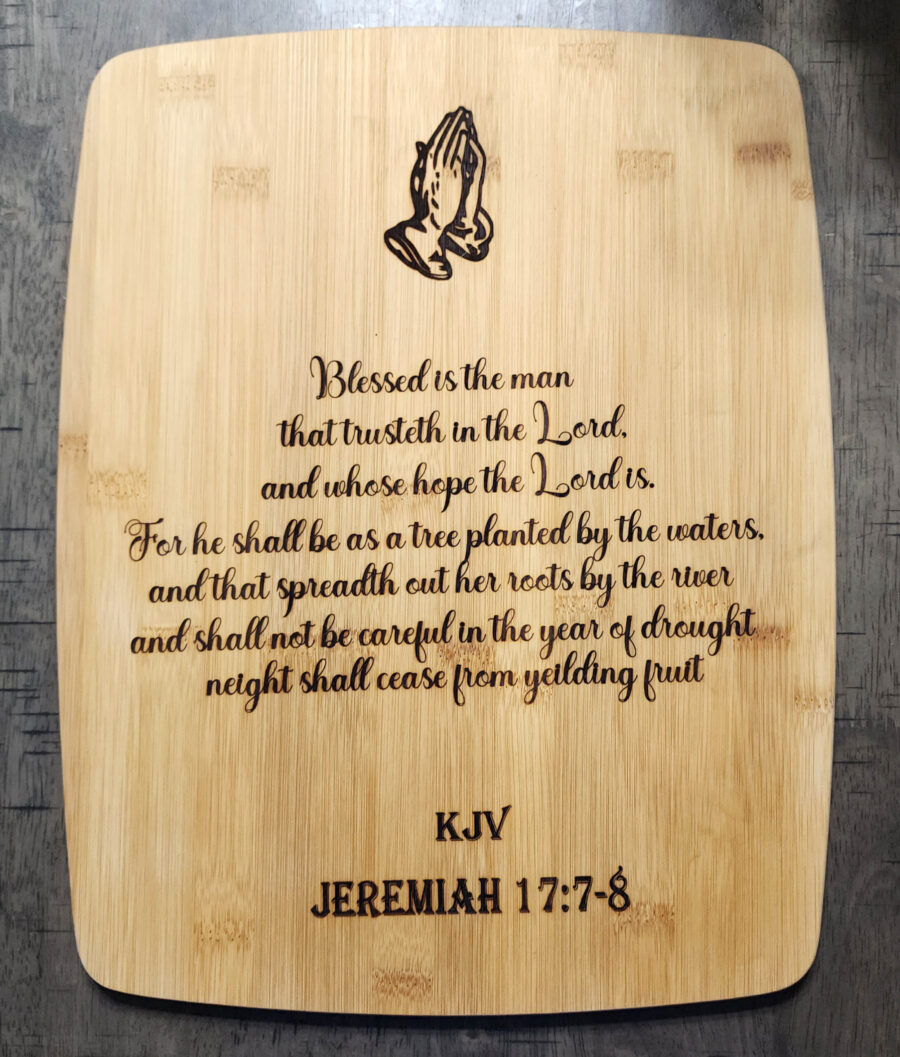 Blessed is the man
that trusteth in the Lord,
and whose hope the Lord is.
For he shall be as a tree planted by the waters,
and that spreadth out her roots by the river
and shall not be careful in the year of drought
neight shall cease from yeilding fruit
KJV
JEREMIAH 17:7-8